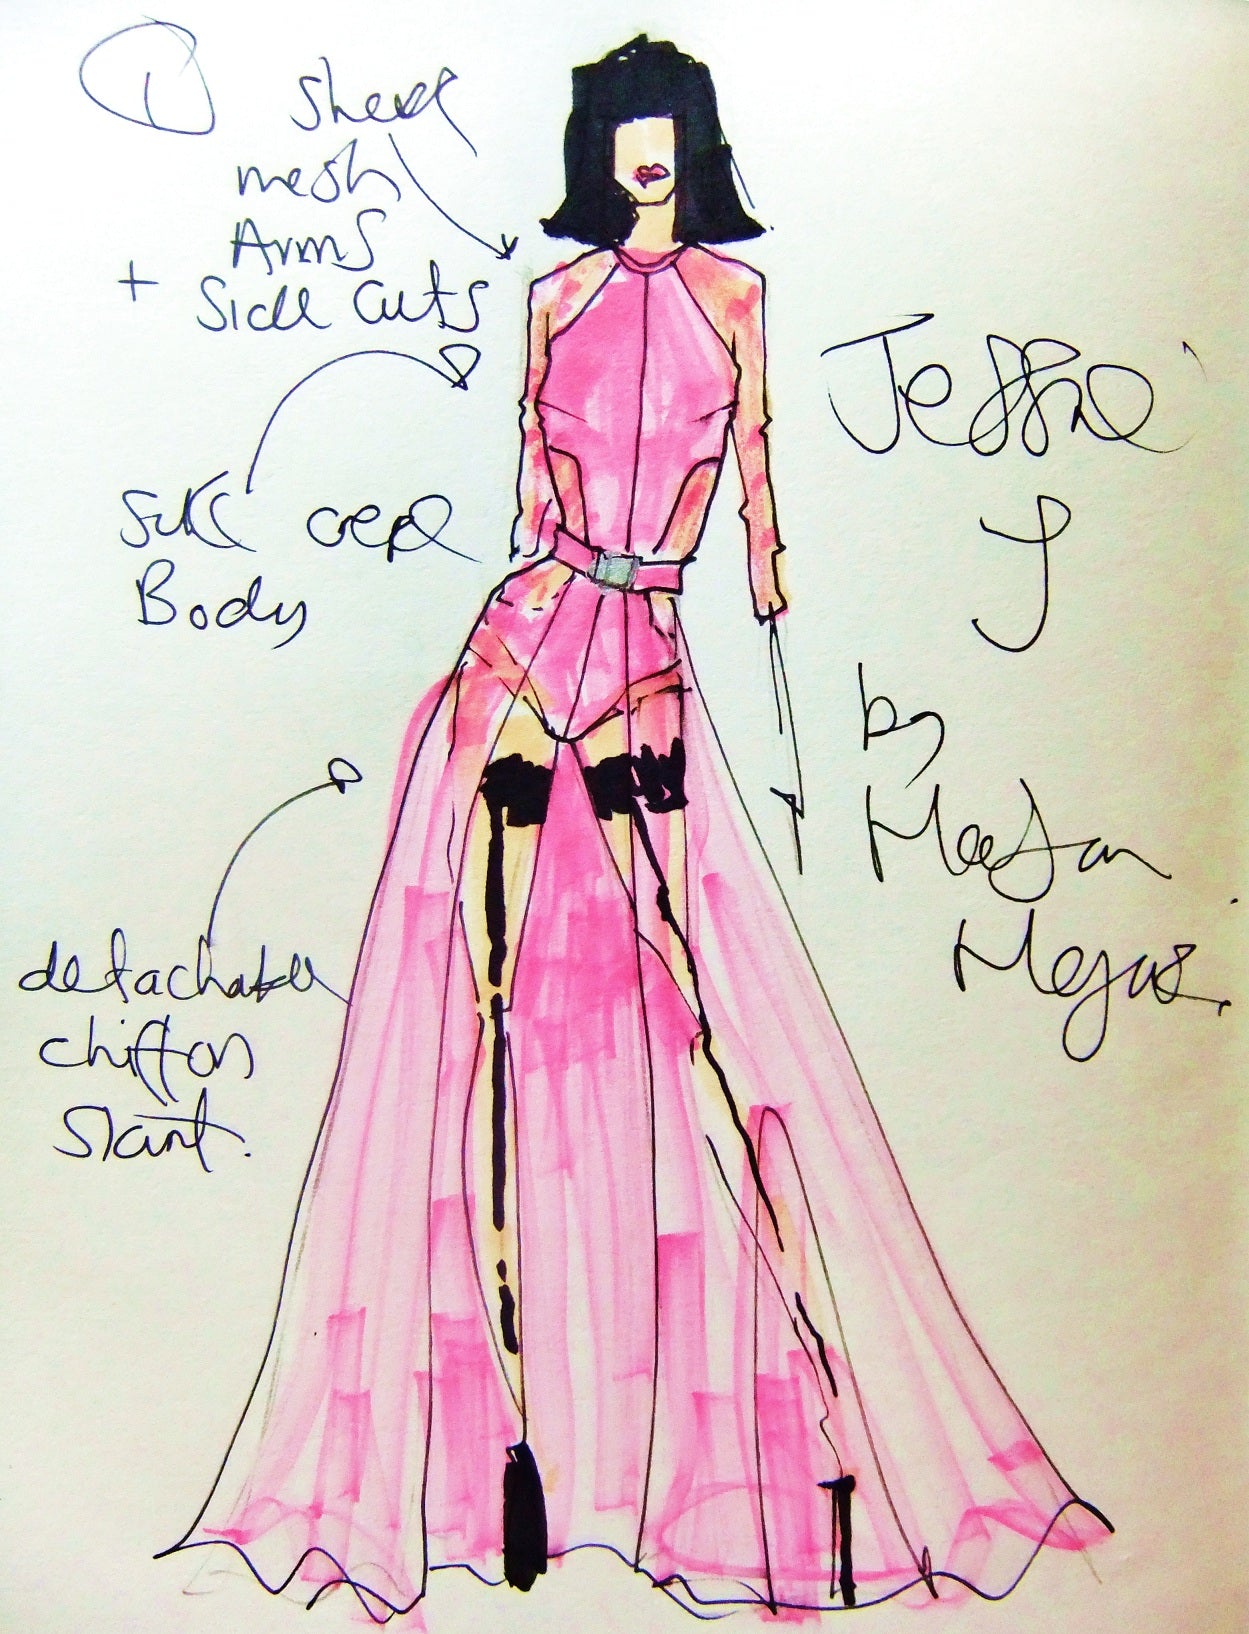 1 Sheer
mesh
Arms
+ Side Cuts
Silk crepe
Body
detachable
chiffon
skirt.
Jessie
J
by
Meefan